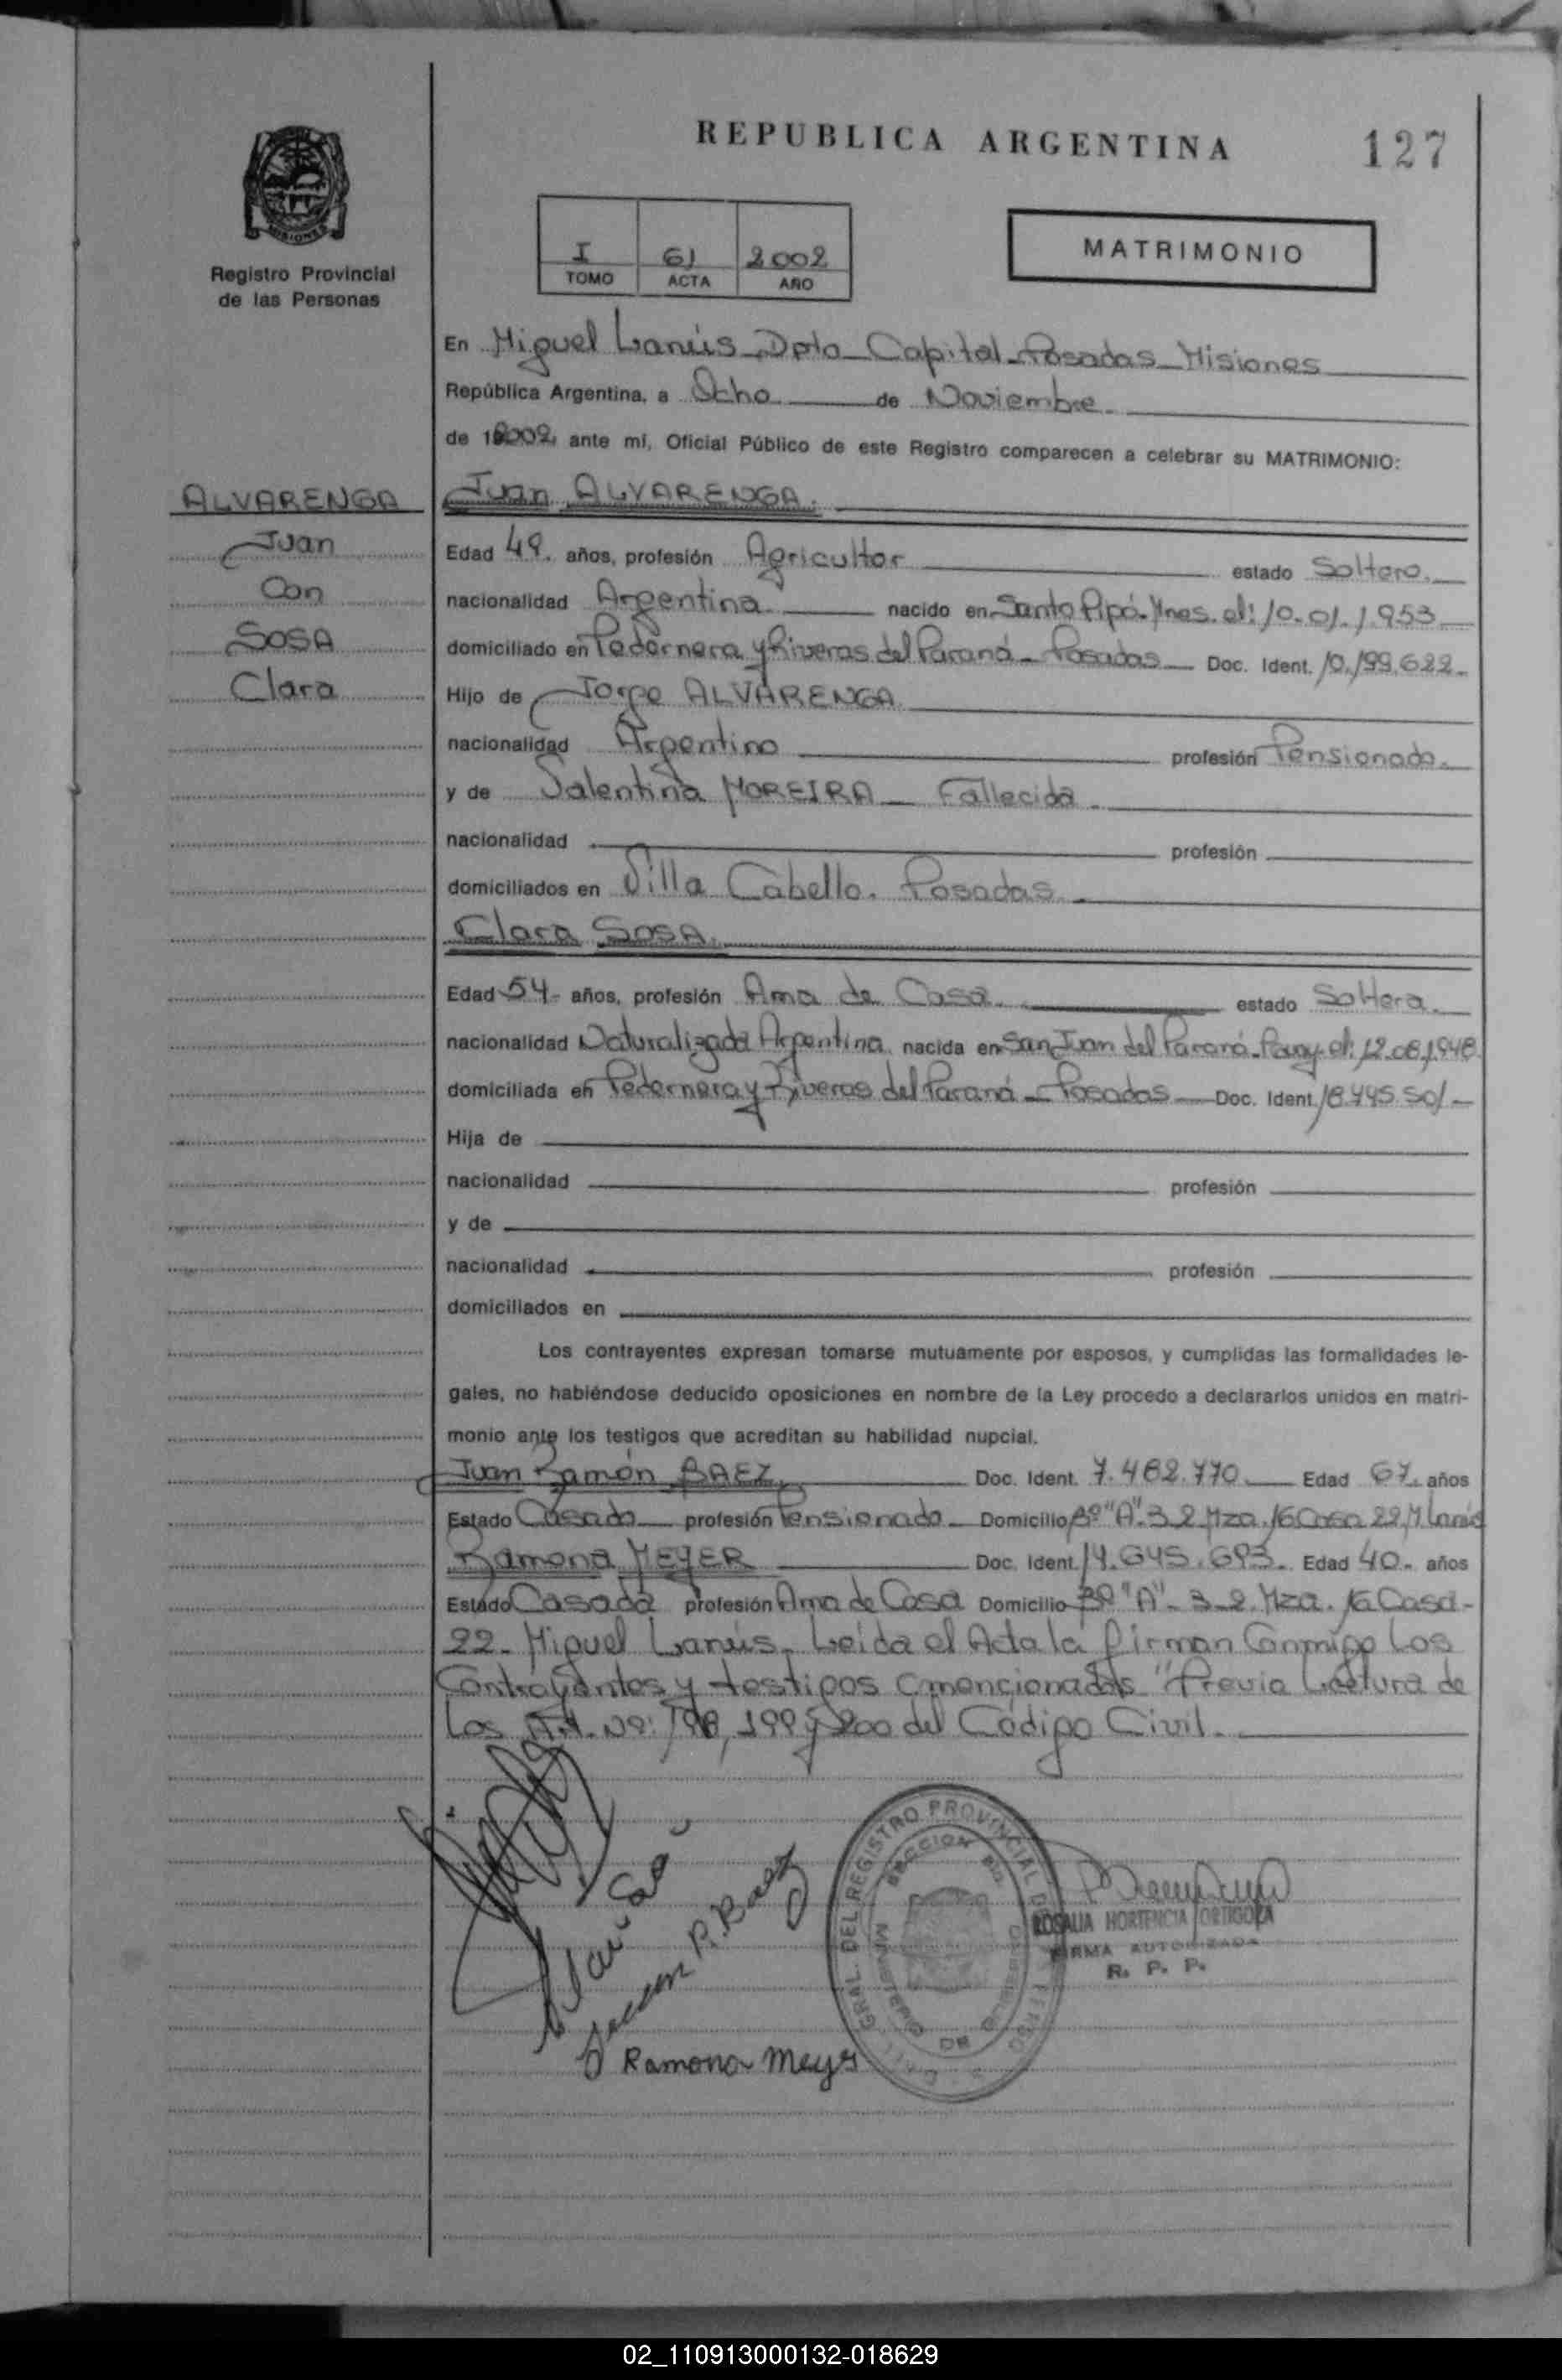 REPUBLICA ARGENTINA
127
MISIONES
Registro Provincial
de las Personas
I 61 2002
TOMO ACTA AÑO
MATRIMONIO
En Miguel Lanús Dpto Capital Posadas Misiones
República Argentina, a Ocho de Noviembre
de 2002 ante mí, Oficial Público de este Registro comparecen a celebrar su MATRIMONIO:
ALVARENGA
Juan
Con
SOSA
Clara
Juan ALVARENGA.
Edad 49. años, profesión Agricultor estado Soltero.
nacionalidad Argentina nacido en Santo Pipó. Mnes. el: 10.01.1.953
domiciliado en Pedernera y Riveras del Paraná - Posadas Doc. Ident. 10.199.622
Hijo de Jorge ALVARENGA
nacionalidad Argentino profesión Pensionado.
y de Valentina MOREIRA - Fallecida
nacionalidad profesión
domiciliados en Villa Cabello. Posadas
Clara SOSA.
Edad 54- años, profesión Ama de Casa. estado Soltera.
nacionalidad Naturalizada Argentina. nacida en San Juan del Paraná - Paray. el: 12.08.1.948
domiciliada en Pedernera y Riveras del Paraná - Posadas Doc. Ident. 18.445.501-
Hija de
nacionalidad profesión
y de
nacionalidad profesión
domiciliados en
Los contrayentes expresan tomarse mutuamente por esposos, y cumplidas las formalidades le-
gales, no habiéndose deducido oposiciones en nombre de la Ley procedo a declararlos unidos en matri-
monio ante los testigos que acreditan su habilidad nupcial.
Juan Ramón BAEZ. Doc. Ident. 7.482.770 Edad 67. años
Estado Casado profesión Pensionado Domicilio Bº "A" 3 2 Mza. 16 Casa 22, M Lanús
Ramona MEYER Doc. Ident. 14.645.693. Edad 40. años
Estado Casada profesión Ama de Casa Domicilio Bº "A" - 3-2. Mza. 16 Casa-
22- Miguel Lanús. Leida el Acta la firman Conmigo los
Contrayentes y testigos mencionados "Previa Lectura de
Los Art. Nº: 198, 199 y 200 del Código Civil.
Juan R. Baez
Ramona Meyer
GRAL. DEL REGISTRO PROVINCIAL
SECCION
DE
ROSALIA HORTENCIA ORTIGOZA
FIRMA AUTORIZADA
R. P. P.
02_110913000132-018629